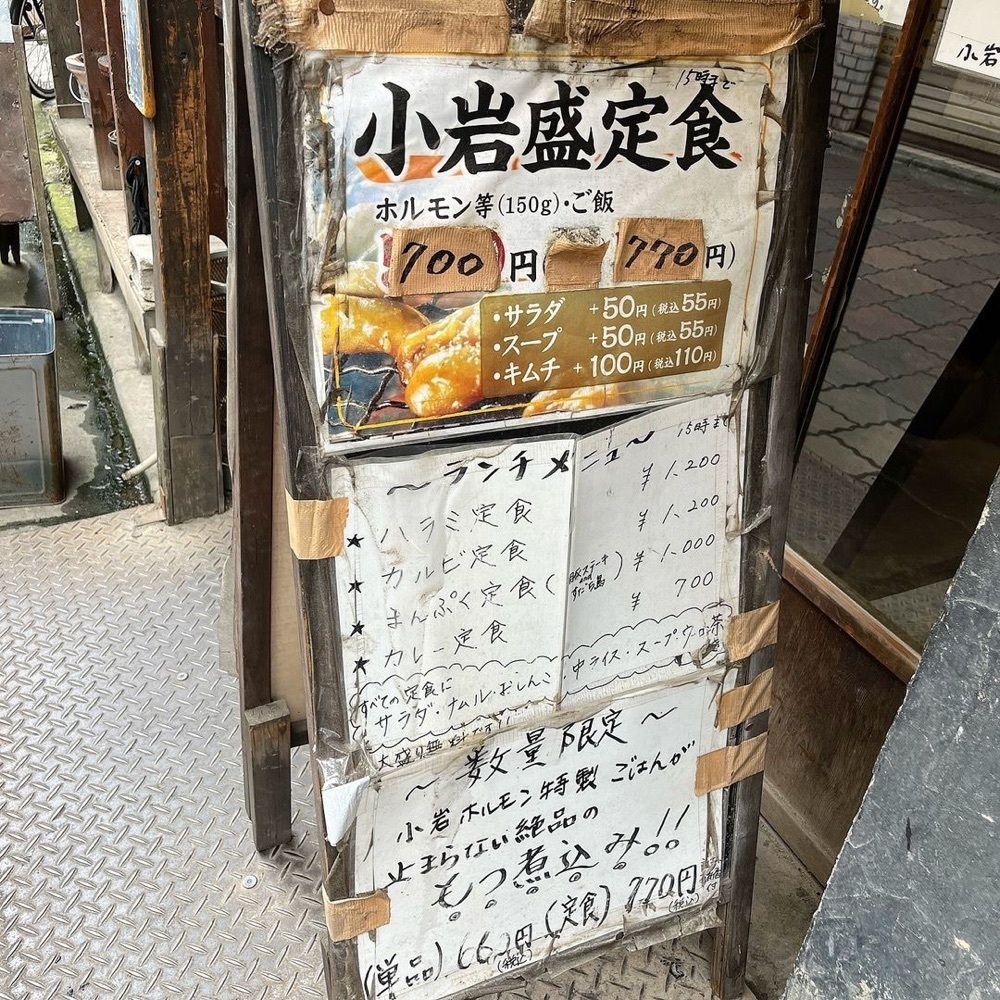 小岩
15時まで
小岩盛定食
ホルモン等(150g)・ご飯
700円( 770円)
・サラダ +50円(税込55円)
・スープ +50円(税込55円)
・キムチ +100円(税込110円)
〜ランチメニュー〜 15時まで
★ ハラミ定食 ¥1,200
★ カルビ定食 ¥1,200
★ まんぷく定食(豚ステーキand すたごろ鳥) ¥1,000
★ カレー定食 ¥700
すべての定食に
サラダ・ナムル・おしんこ・中ライス・スープ・ウーロン茶
大盛り無料です!!
〜数量限定〜
小岩ホルモン特製 ごはんが
止まらない絶品の
もつ煮込み!!
(単品) 660円(税込) (定食) 770円(税込)